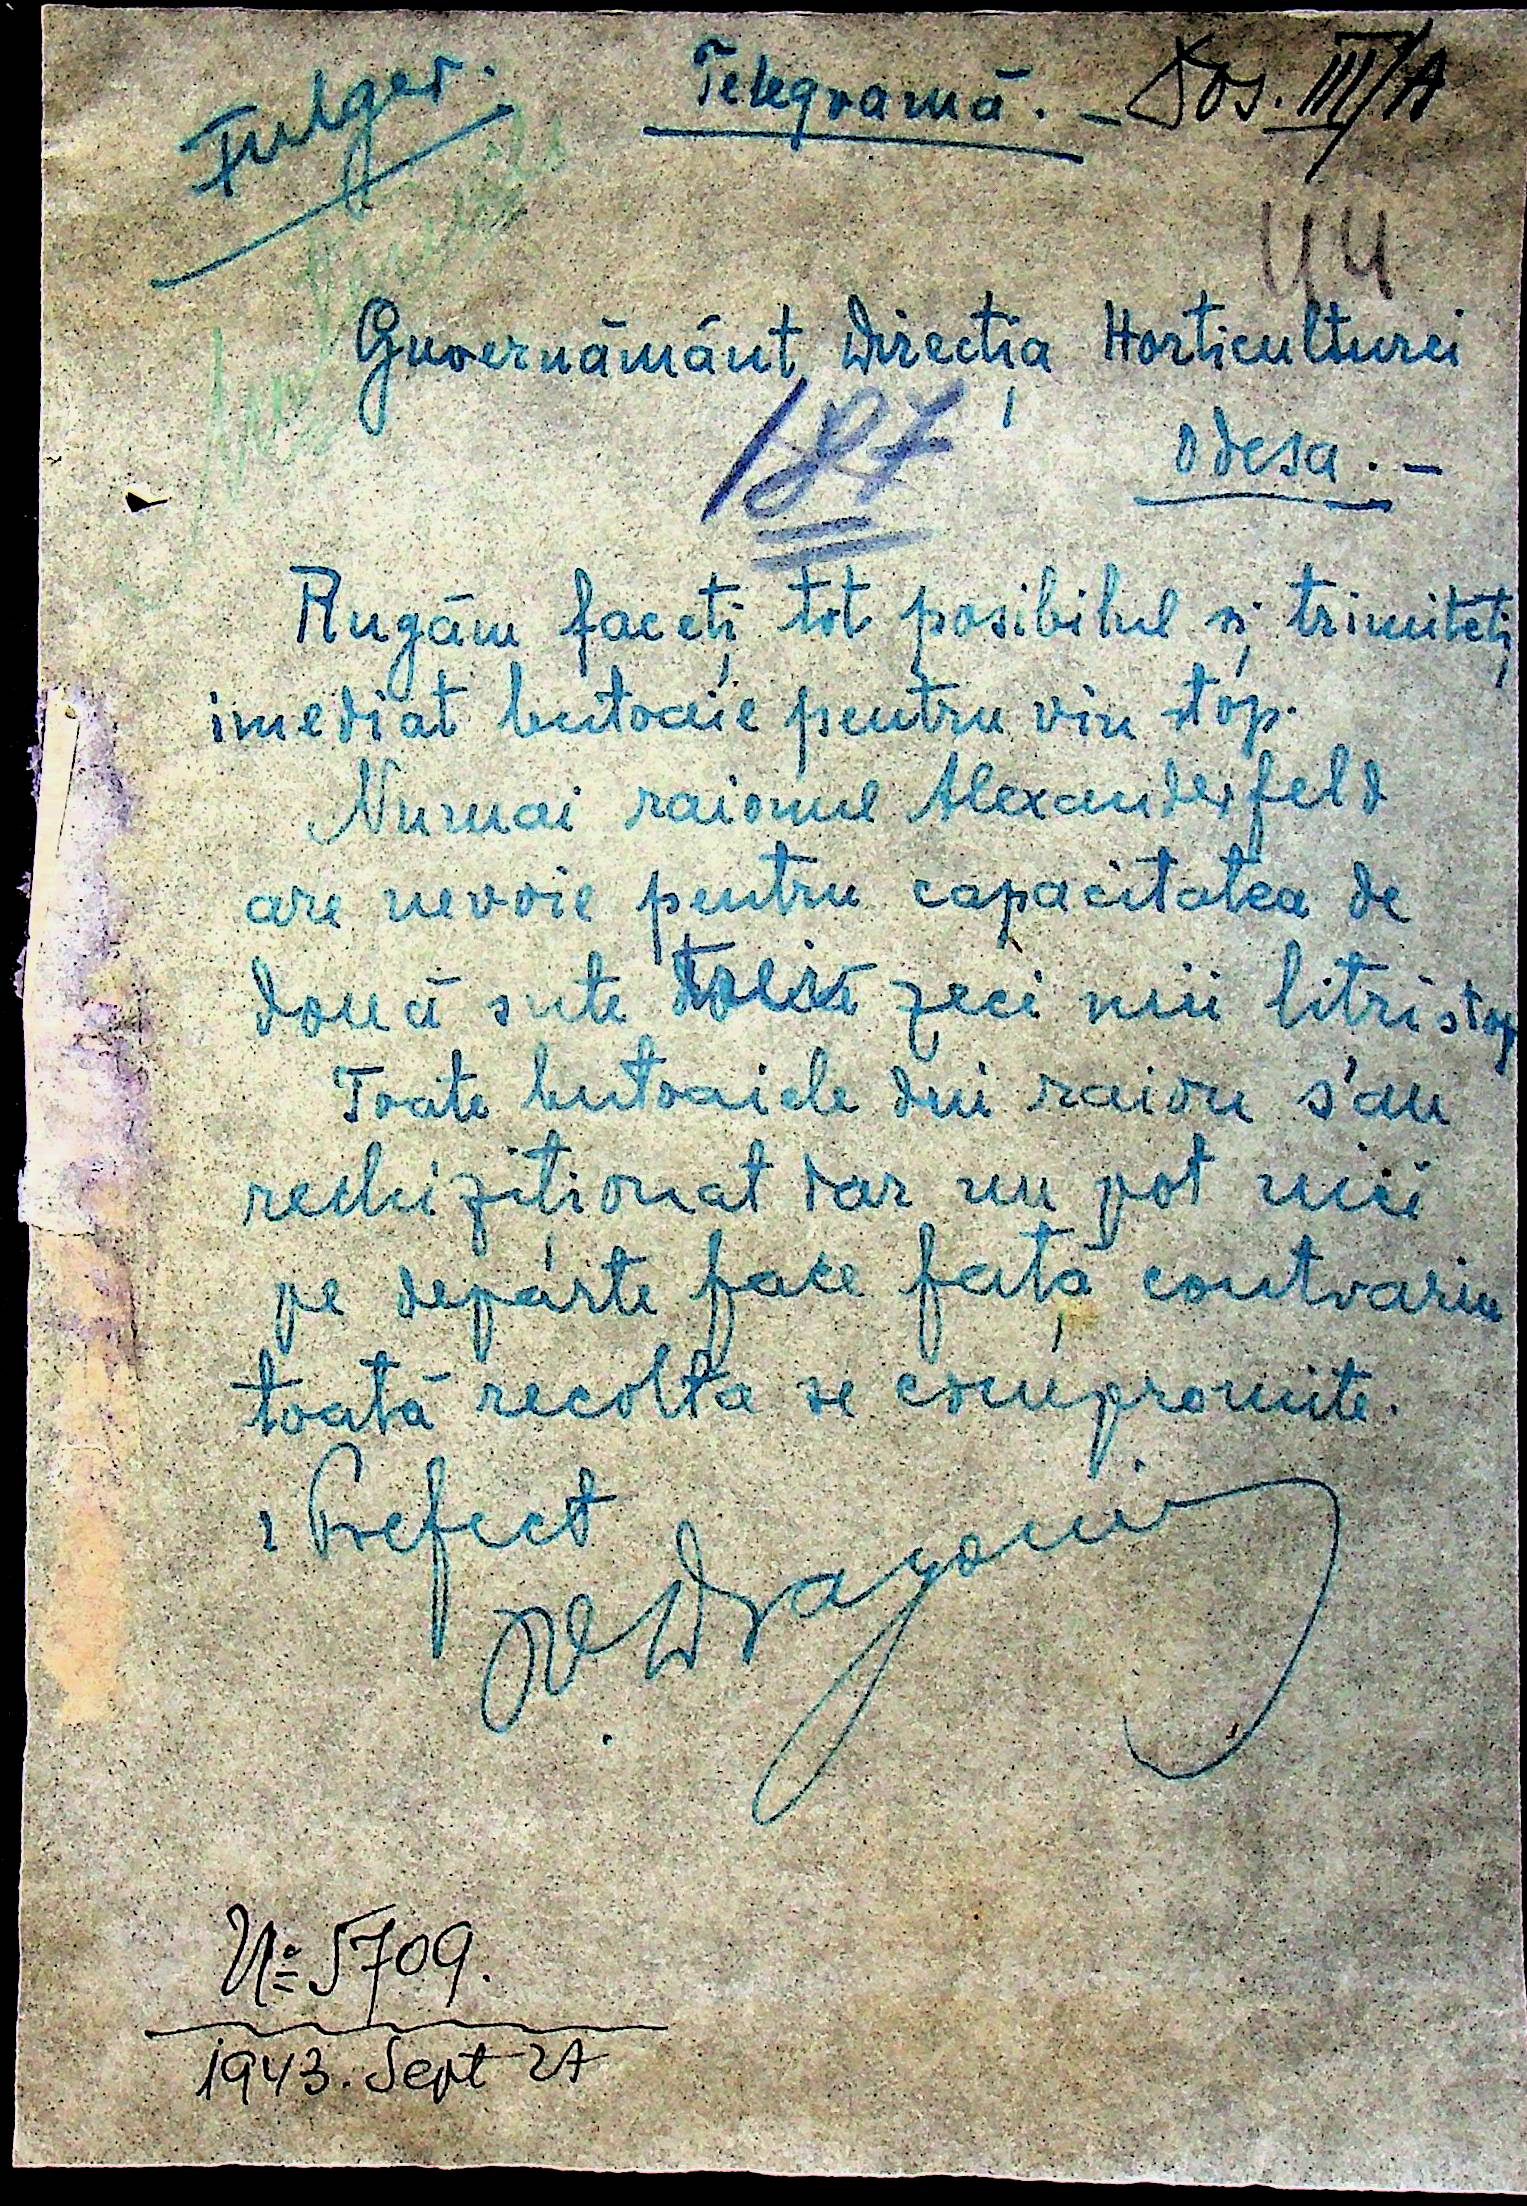 Fulger.
Telegramă. - Dos. III/A
44
Guvernământ Direcția Horticulturei
187
Odesa. -
Rugăm faceți tot posibilul și trimiteți
imediat butoaie pentru vin stop.
Numai raionul Alexanderfeld
are nevoie pentru capacitatea de
două sute zeci mii litri stop
Toate butoaiele din raion s'au
rechiziționat dar nu pot nici
pe departe face față contrariu
toată recolta se compromite.
Prefect
Nº 5709.
1943. Sept 27